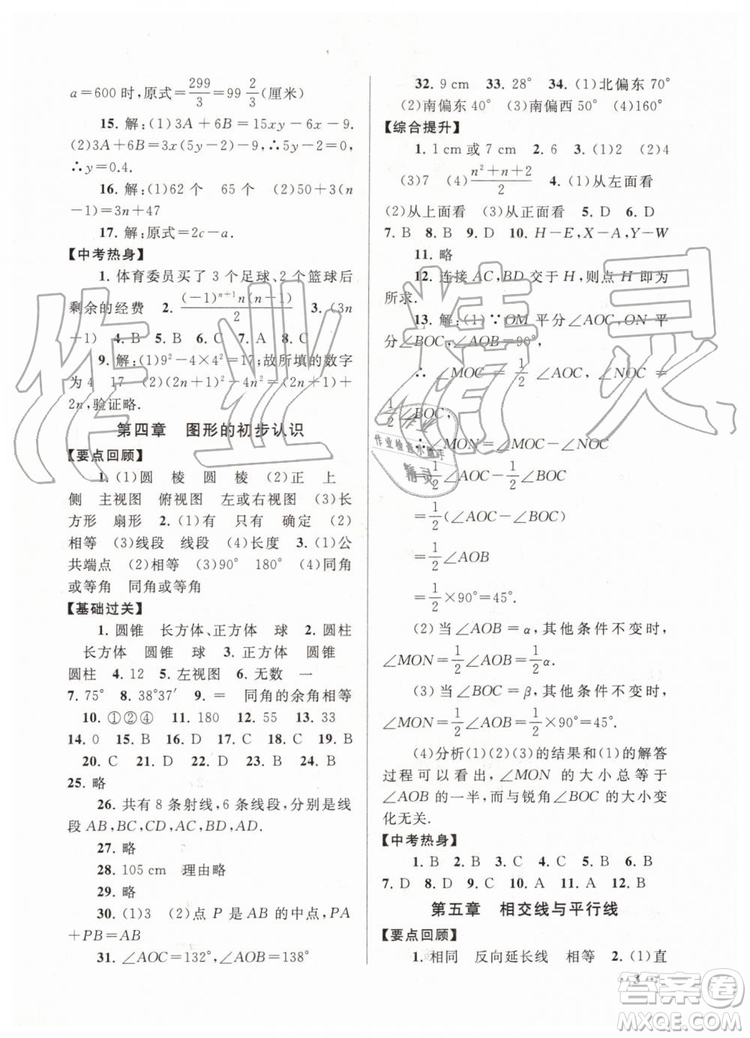 a=600 时,原式=299/3=99 2/3(厘米)
15. 解:(1)3A+6B=15xy-6x-9.
(2)3A+6B=3x(5y-2)-9=-9,所以
y=0.4.
16. 解:(1)62 个 65 个 (2)50+3(n
-1)=3n+47
17. 解:原式=2c-a.
【中考热身】
1. 体育委员买了 3 个足球、2 个篮球后
剩余的经费 2. (-1)ⁿ⁺¹(n+1)/2 3. (3n
+1) 4. B 5. B 6. A 7. A 8. C
9. 解:(1)9²-4×4²=17;故所填的数字
为 4 17 (2)(2n+1)²-4n²=(2n+1)+
2n,验证略.
第四章 图形的初步认识
【要点回顾】
1. (1)圆 棱 圆 棱 (2)正 上
侧 主视图 俯视图 左或右视图 (3)长
方形 扇形 2. (1)有 只有 确定 (2)
相等 (3)线段 线段 (4)长度 3. (1)公
共端点 (2)相等 (3)90° 180° (4)同角
或等角 同角或等角
【基础过关】
1. 圆锥 长方体、正方体 球 2. 圆柱
长方体 圆锥 3. 正方体 球 圆锥
圆柱 4. 12 5. 左视图 6. 无数 一
7. 75° 8. 38°37′ 9. = 同角的余角相等
10. ①②④ 11. 180 12. 55 13. 33
14. 0 15. B 16. D 17. D 18. C 19. B
20. C 21. D 22. B 23. D 24. B
25. 略
26. 共有 8 条射线,6 条线段,分别是线
段 AB,BC,CA,AD,BD,CD.
27. 略
28. 105 cm 理由略
29. 略
30. (1)略 (2)点 P 是 AB 的中点,PA
+PB=AB
31. ∠AOC=132°,∠AOB=138°
32. 9 cm 33. 28° 34. (1)北偏东 70°
(2)南偏东 40° (3)南偏西 50° (4)160°
【综合提升】
1. 1 cm 或 7 cm 2. 6 3. (1)2 (2)4
(3)7 (4)(n²+n+2)/2 4. (1)从左面看
(2)从上面看 (3)从正面看 5. D 6. D
7. B 8. A 9. D 10. H-E,X-A,Y-W
11. 略
12. 连接 AC,BD 交于 H,则点 H 即为
所求.
13. 解:(1)∵OM 平分∠AOC,ON 平
分∠BOC,∠AOB=90°,
∴ ∠MOC=1/2∠AOC,∠NOC=
1/2∠BOC.
∴ ∠MON=∠MOC-∠NOC
=1/2∠AOC-1/2∠BOC
=1/2(∠AOC-∠BOC)
=1/2∠AOB
=1/2×90°=45°.
(2)当∠AOB=α,其他条件不变时,
∠MON=1/2∠AOB=1/2α.
(3)当∠BOC=β,其他条件不变时,
∠MON=1/2∠AOB=1/2×90°=45°.
(4)分析(1)的结果和(1)的解答
过程可以看出:∠MON 的大小总等于
∠AOB 的一半,而与锐角∠BOC 的大小变
化无关.
【中考热身】
1. B 2. B 3. B 4. C 5. B 6. B
7. D 8. D 9. A 10. C
第五章 相交线与平行线
【要点回顾】
1. 相同 反向延长线 相等 2. (1)直
3
作业精灵
答案圈